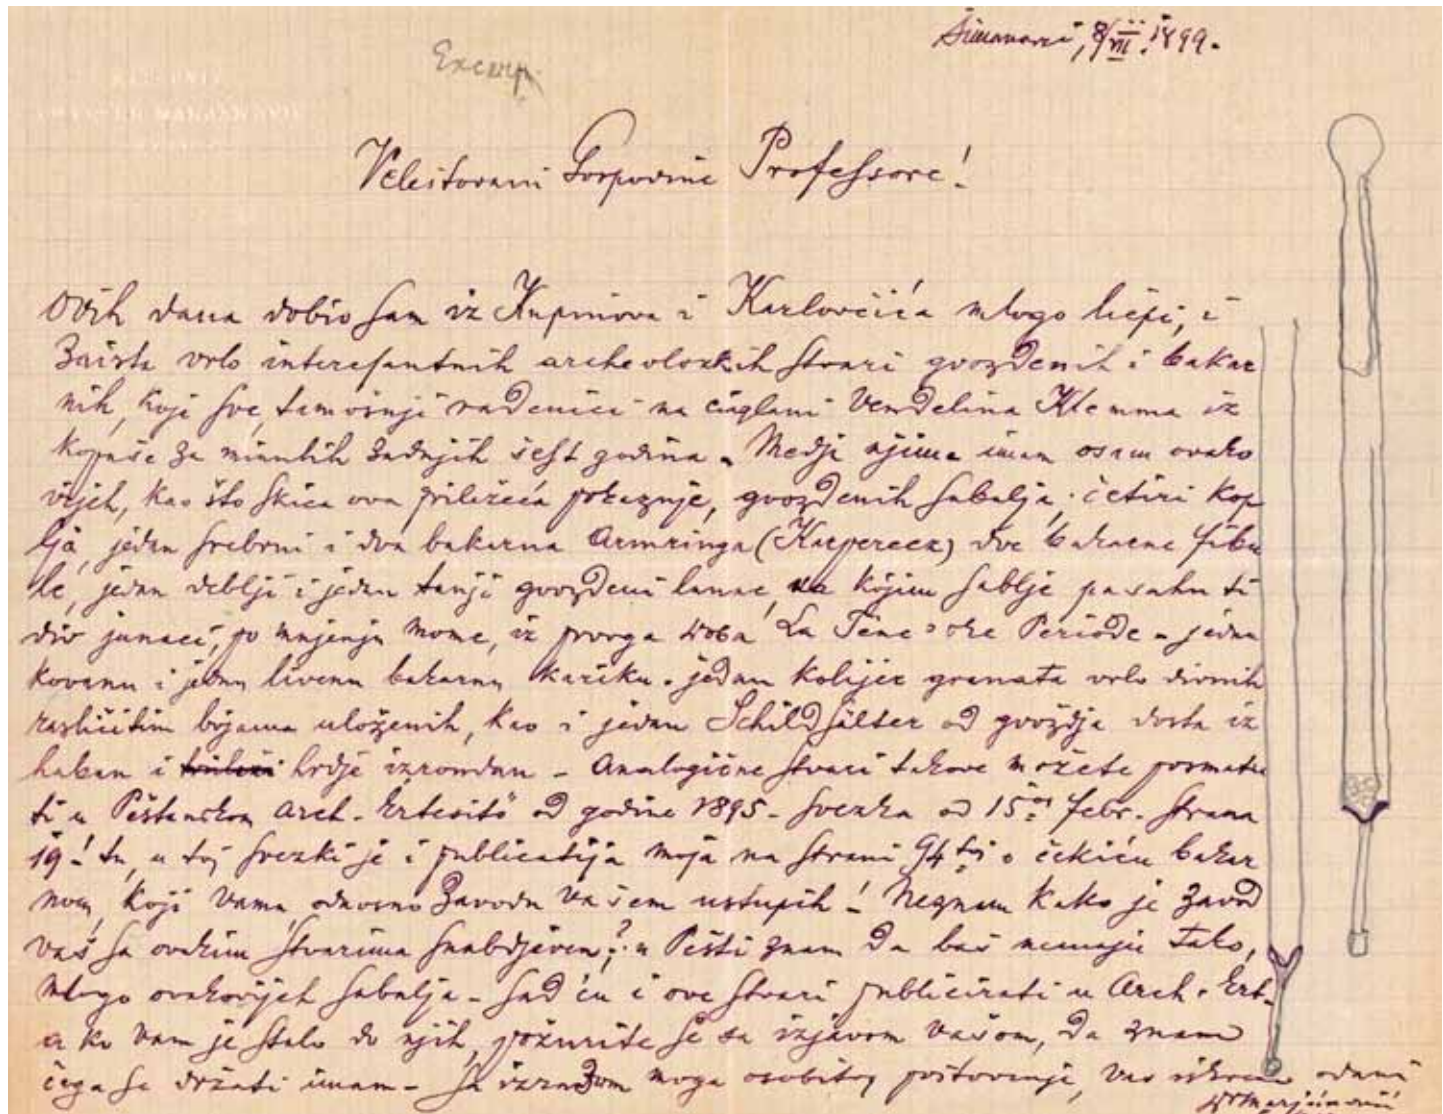 Šimanovci, 8/VII. 1899.
Excerp.
Veleštovani Gospodine Professore!
Ovih dana dobio sam iz Kupinova i Karlovčića mlogo liepi, i
zaista vrlo interesantnih archeoložkih stvari gvozdenih i bakar
nih, koji sve, tamošnji radenici na ciglani Vendelina Klemma iz
kopaše za minulih zadnjih šest godina. Medji njima imam osam ovako
vijeh, kao što skica ova priležeća pokazuje, gvozdenih sabalja, četiri kop
lja, jedan srebrni i dva bakarna Armringa (Karperecz) dve bakarne fibu
le, jedan deblji i jedan tanji gvozdeni lanac, na kojim sablje pasahu ti
div junaci, po mnjenju mome, iz prvoga doba La Tène-ske Periode - jednu
kovanu i jednu livenu bakarnu kariku. jedan kolijer granata vrlo divnih
različitim bojama uloženih, kao i jedan Schildhälter od gvoždja dosta iz
haban i hrdje izromdan - Analogične stvari takove možete posmatra
ti u Peštanskom Arch. Ertesitö od godine 1895. svezka od 15. febr. strana
19! tu, u toj svezki je i publicatija moja na strani 94 toj o čekiću bakar
nom, koji vama, odnosno Zavodu vašem ustupih! Neznam kako je Zavod
vaš sa ovakim stvarima snabdjeven? u Pešti znam da baš nemaju tako,
mlogo ovakovijeh sabalja - sad ću i ove stvari publicirati u Arch. Ert.
ako vam je stalo do njih, požurite se sa izjavom vašom, da znam
čega se držati imam - Sa izrazom moga osobitog poštovanja, vas iskreno odani